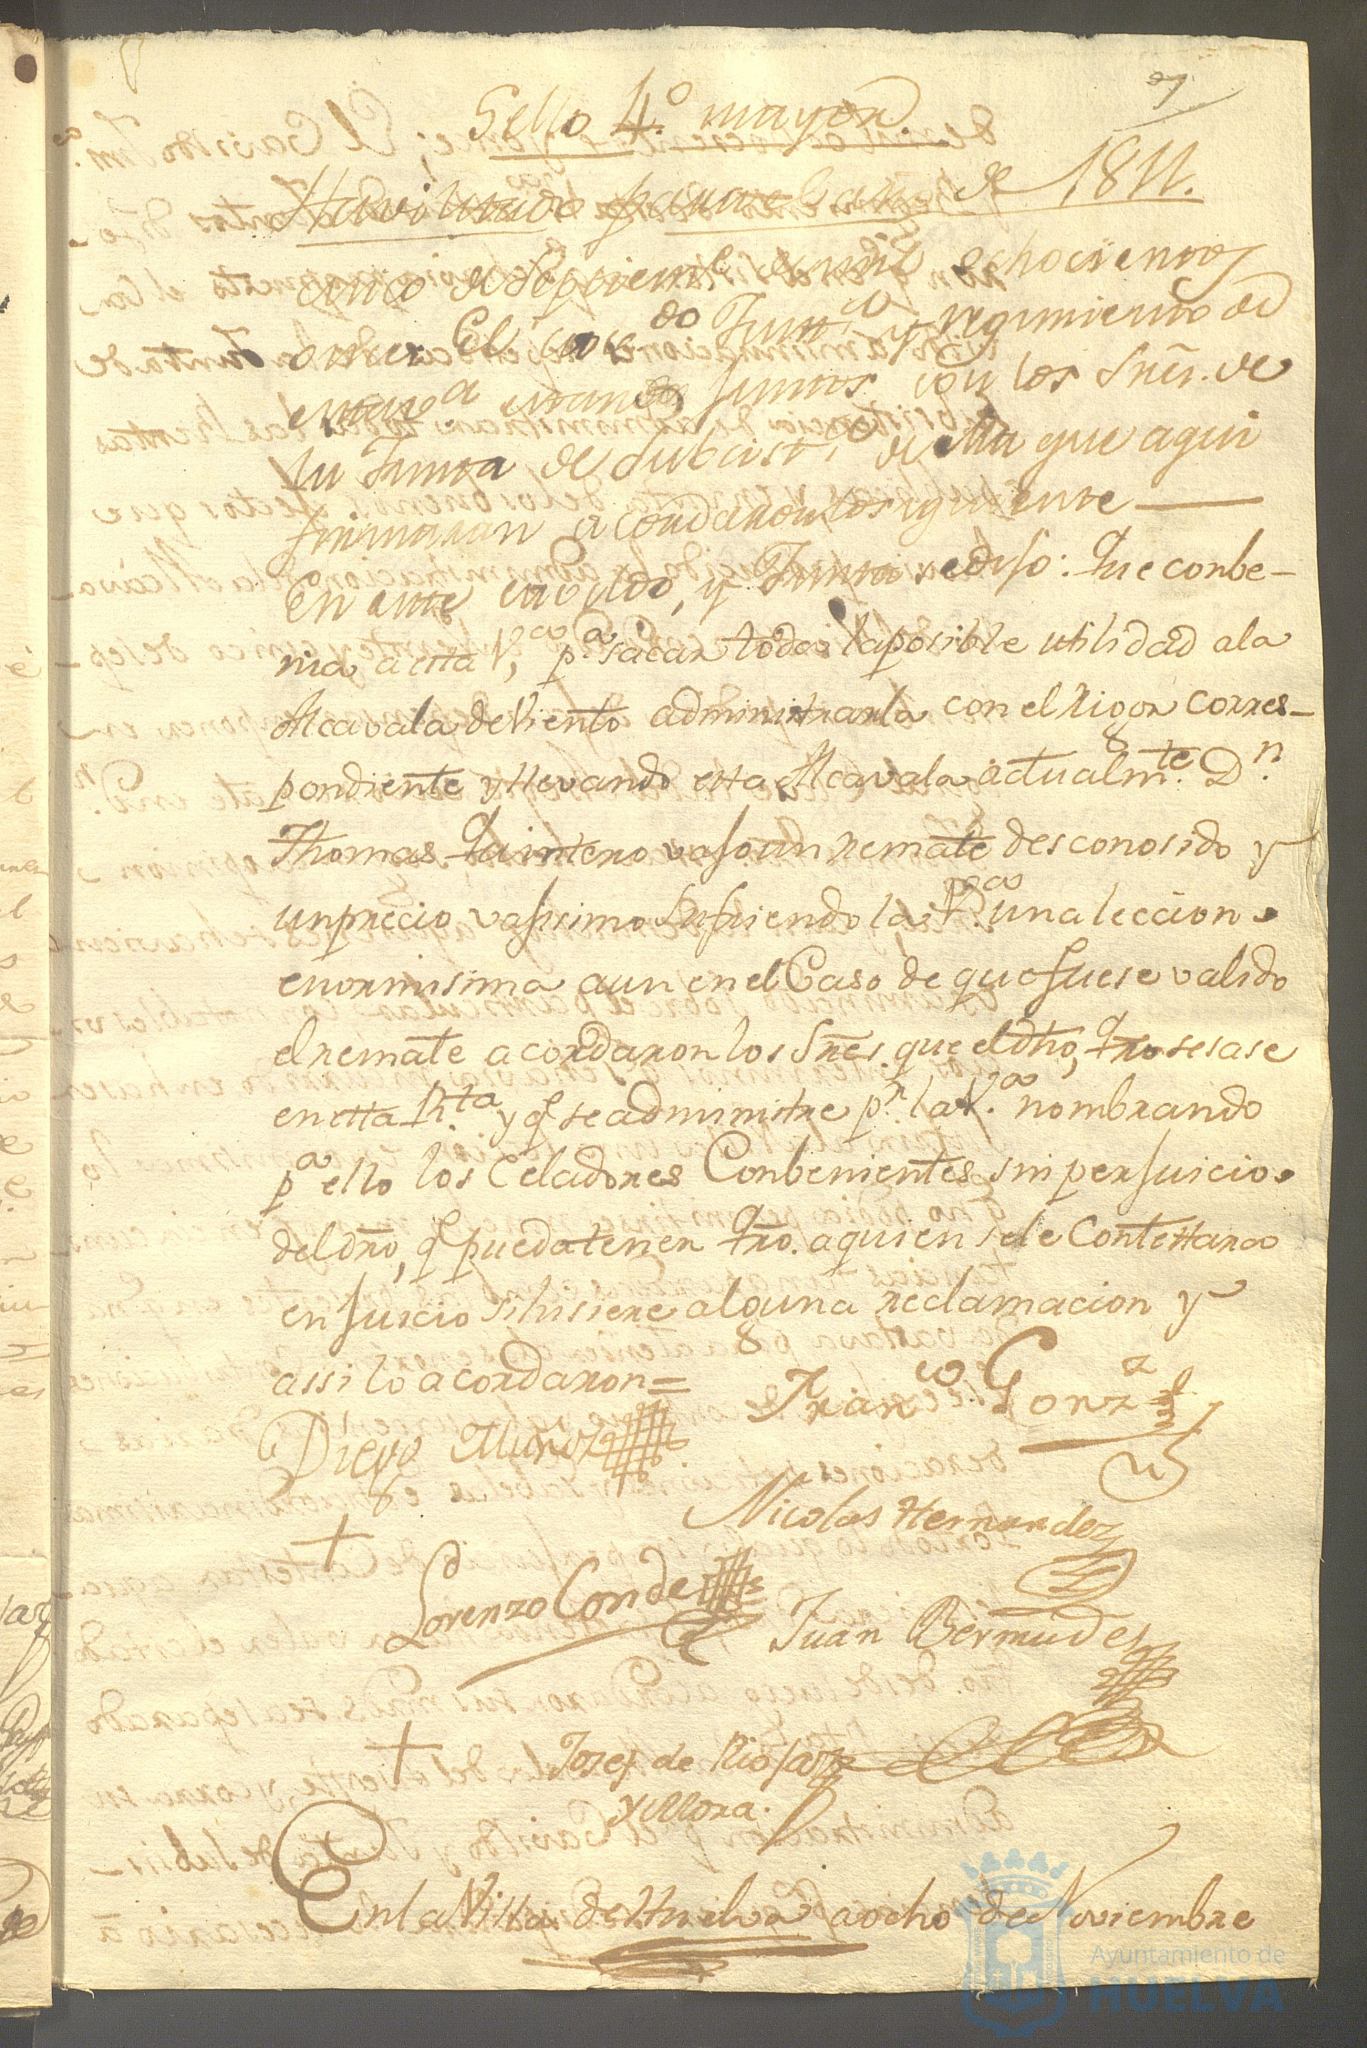 Sello 4.º mayor
Havilitado para el año de 1811.
cinco de Septiembre de mil ochocientos
onze: El cav.do Just.a y regimiento de
esta v.a estando juntos con los Sres. de
la Junta de Subcist.a de ella que aqui
firmaran acordaron lo siguiente —
En este cavildo, y Junta se dijo: Que conbe-
nia a esta V.a, p.a sacar toda la posible utilidad ala
Alcavala de Viento administrarla con el Rigor corres-
pondiente y llevando esta Alcavala actualm.te D.n
Thomas Quintero vajo un remate desconosido y
un precio vassimo sufriendo la V.a una leccion
enormisima aun en el Caso de que fuese valido
el remate acordaron los Sres. que el dho, Qro sesase
en esta R.ta y q.e se administre p.r la V.a nombrando
p.a ello los Celadores Conbenientes sin perjuicio
del dro, q.e pueda tener Qro. a quien se le Contestara
en juicio si hisiere alguna reclamacion y
assi lo acordaron =
Diego Muñoz
Fran.co Gonz.z
Nicolas Hernandez
Lorenzo Conde
Juan Bermudes
Josef de Rioja
y Mora.
En la Villa de Huelva a ocho de Noviembre
Ayuntamiento de
HUELVA